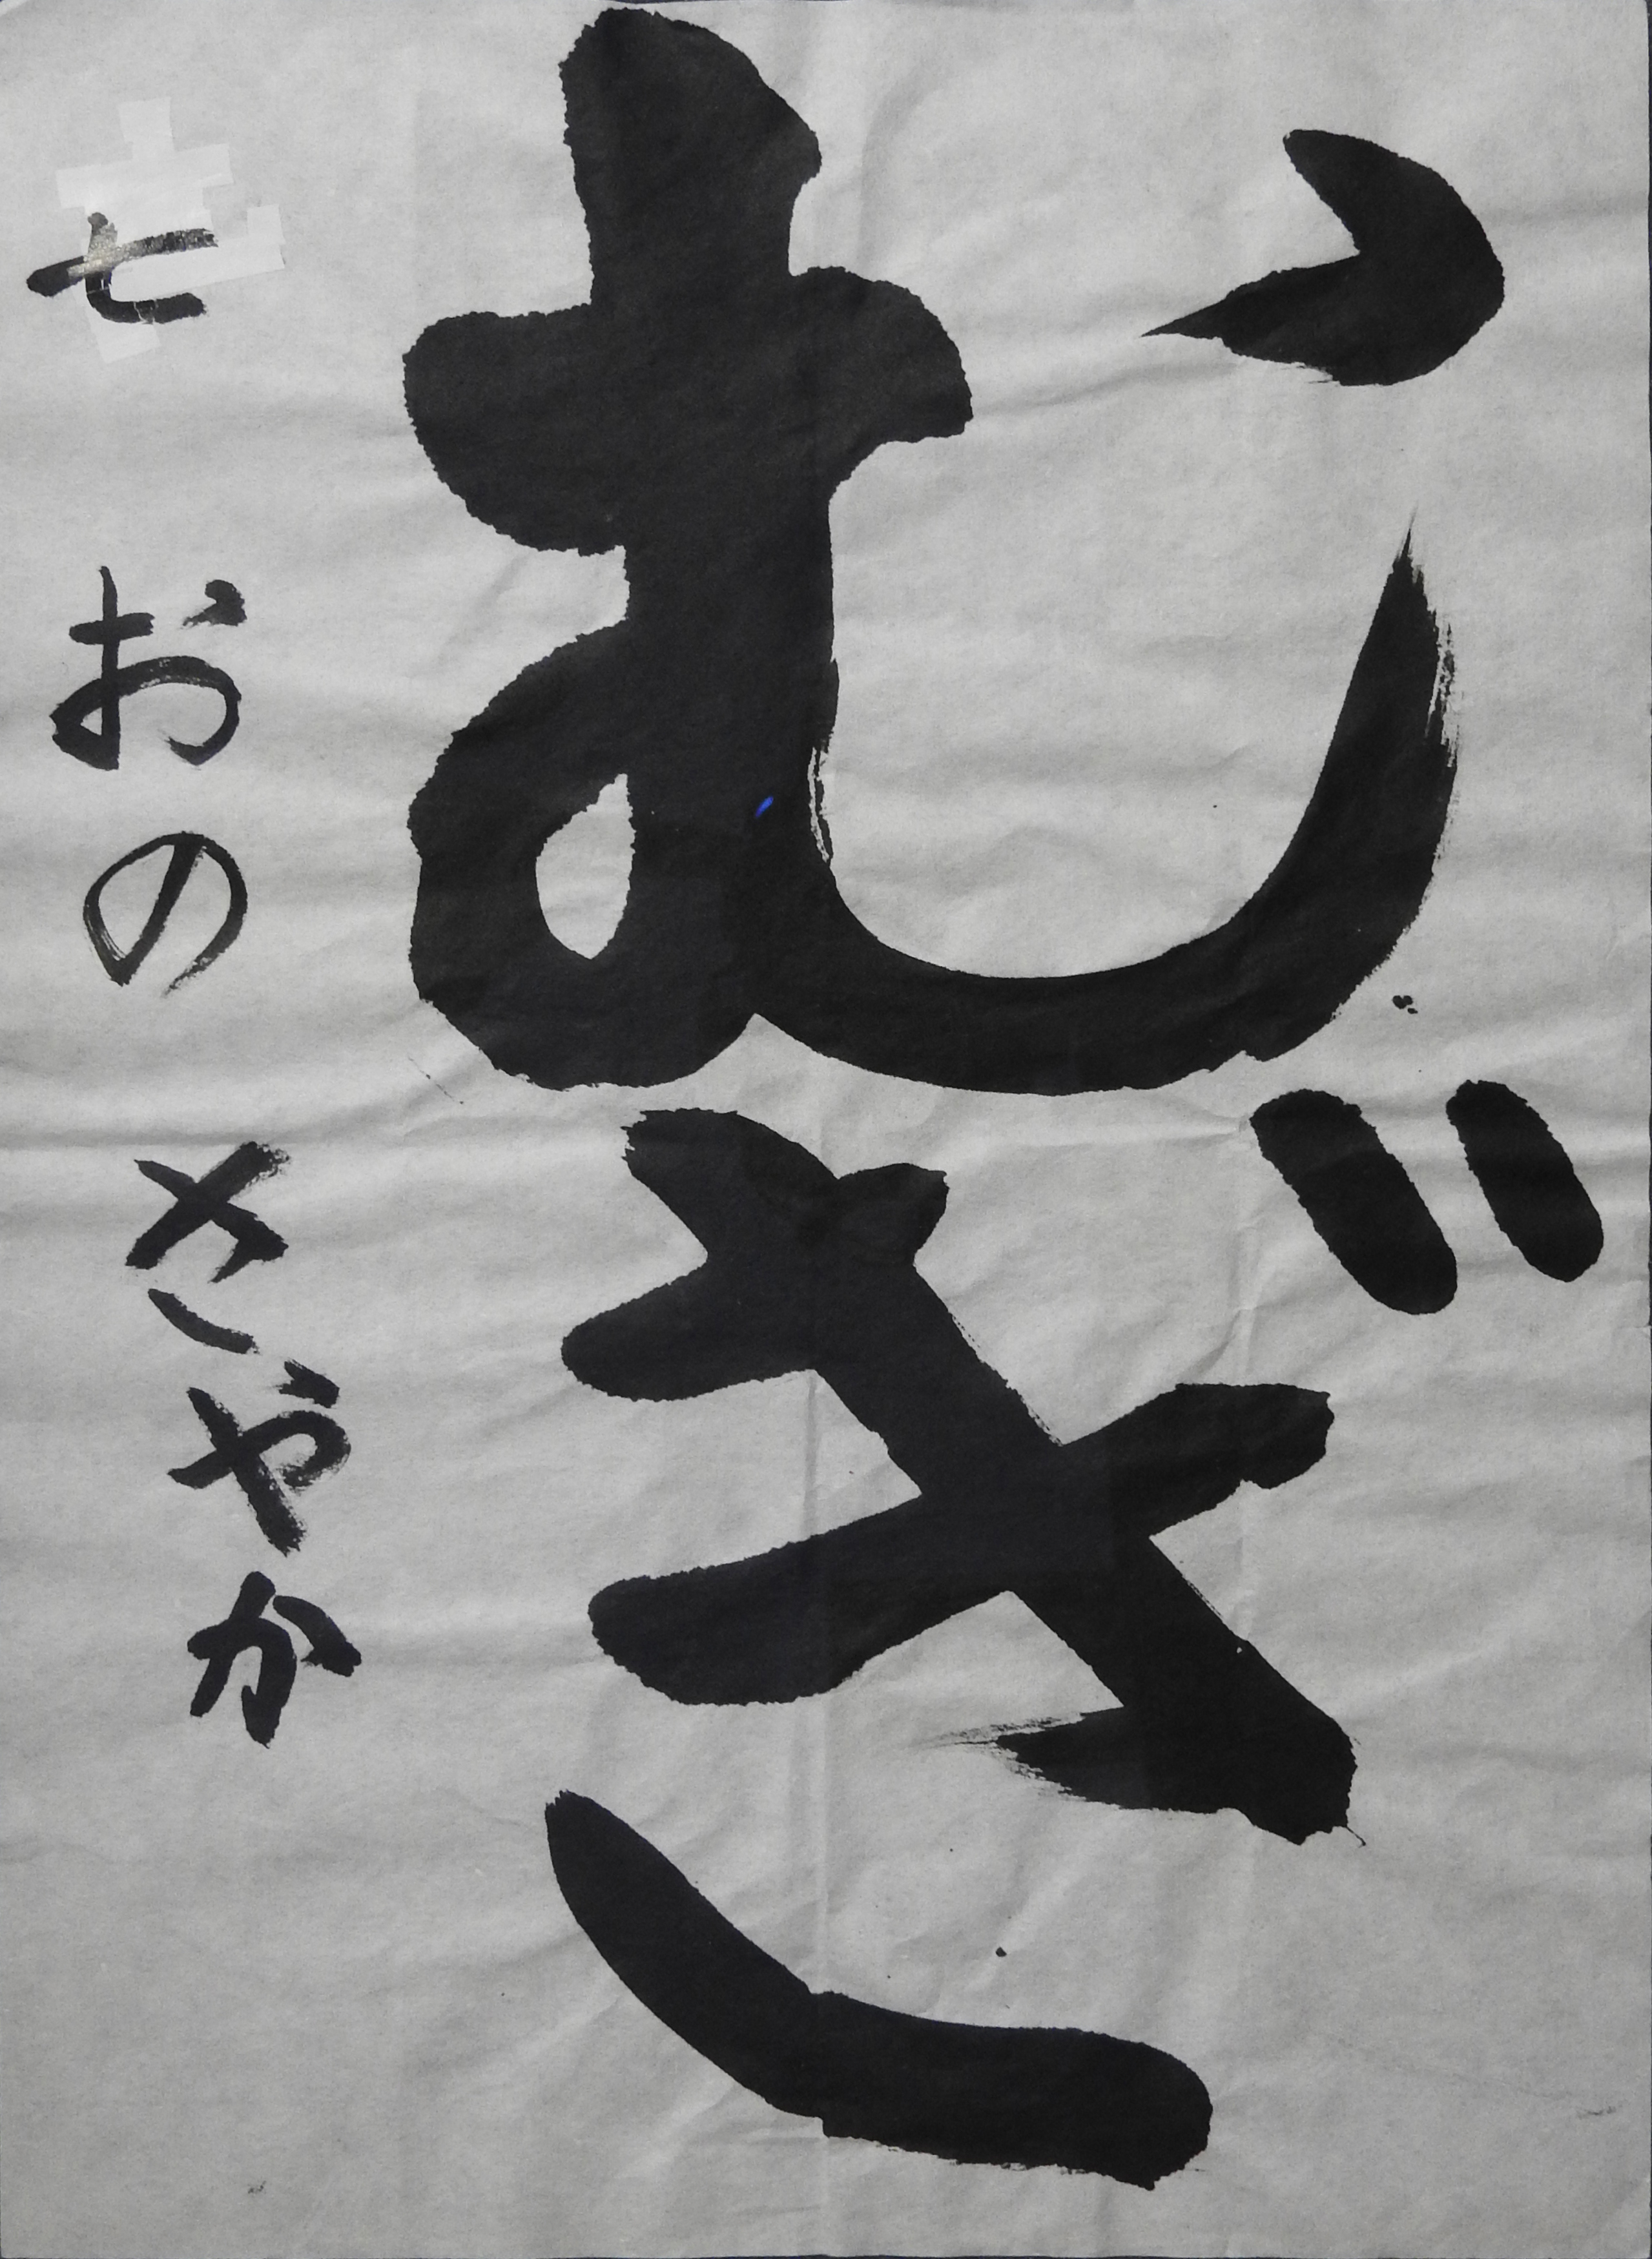 むぎ
七 おの さやか